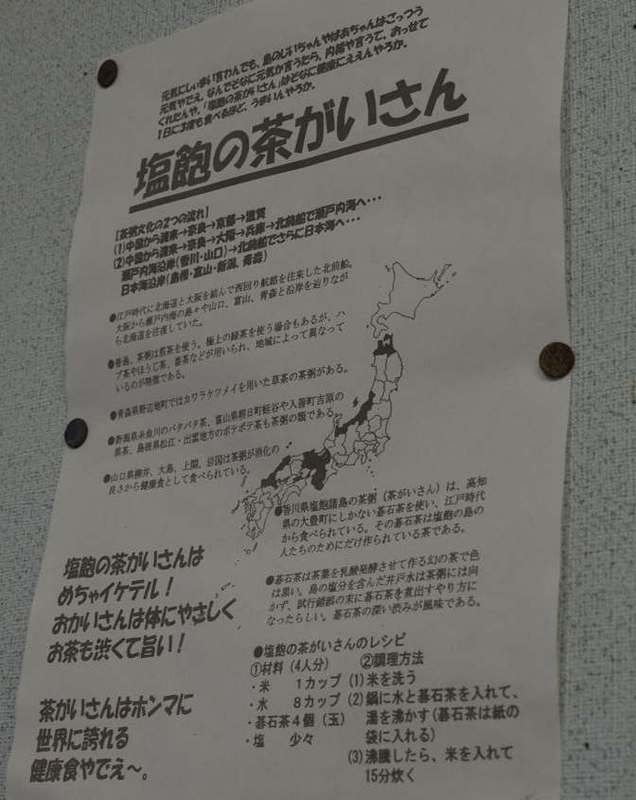 元気にしいまい言わんでも、島のじいちゃんやばあちゃんはごっつう
元気やでえ。なんでそなに元気か言うたら、内緒や言うて、おっせて
くれたんや。「塩飽の茶がいさん」はどなに健康にええんやろか。
1日に3度も食べるほど、うまいんやろか。
塩飽の茶がいさん
[茶粥文化の2つの流れ]
(1)中国から渡来→奈良→京都→滋賀
(2)中国から渡来→奈良→大阪→兵庫→北前船で瀬戸内海へ・・・
瀬戸内海沿岸(香川・山口)→北前船でさらに日本海へ・・・
日本海沿岸(島根・富山・新潟、青森)
●江戸時代に北海道と大阪を結んで西回り航路を往来した北前船。
大阪から瀬戸内海の島々や山口、富山、青森と沿岸を辿りなが
ら北海道を往復していた。
●普通、茶粥は煎茶を使う。極上の緑茶を使う場合もあるが、ハ
ブ茶やほうじ茶、番茶などが用いられ、地域によって異なって
いるのが特徴である。
●青森県野辺地町ではカワラケツメイを用いた草茶の茶粥がある。
●新潟県糸魚川のバタバタ茶、富山県朝日町蛭谷や入善町吉原の
黒茶、島根県松江・出雲地方のボテボテ茶も茶粥の類である。
●山口県柳井、大島、上関、岩国は茶粥が消化の
良さから健康食として食べられている。
●香川県塩飽諸島の茶粥(茶がいさん)は、高知
県の大豊町にしかない碁石茶を使い、江戸時代
から食べられている。その碁石茶は塩飽の島の
人たちのためにだけ作られている茶である。
●碁石茶は茶葉を乳酸発酵させて作る幻の茶で色
は黒い。島の塩分を含んだ井戸水は茶粥には向
かず、試行錯誤の末に碁石茶を煮出すやり方に
なったらしい。碁石茶の深い渋みが風味である。
塩飽の茶がいさんは
めちゃイケテル!
おかいさんは体にやさしく
お茶も渋くて旨い!
茶がいさんはホンマに
世界に誇れる
健康食やでえ～。
●塩飽の茶がいさんのレシピ
①材料(4人分) ②調理方法
・米 1カップ (1)米を洗う
・水 8カップ (2)鍋に水と碁石茶を入れて、
・碁石茶4個(玉) 湯を沸かす(碁石茶は紙の
・塩 少々 袋に入れる)
(3)沸騰したら、米を入れて
15分炊く